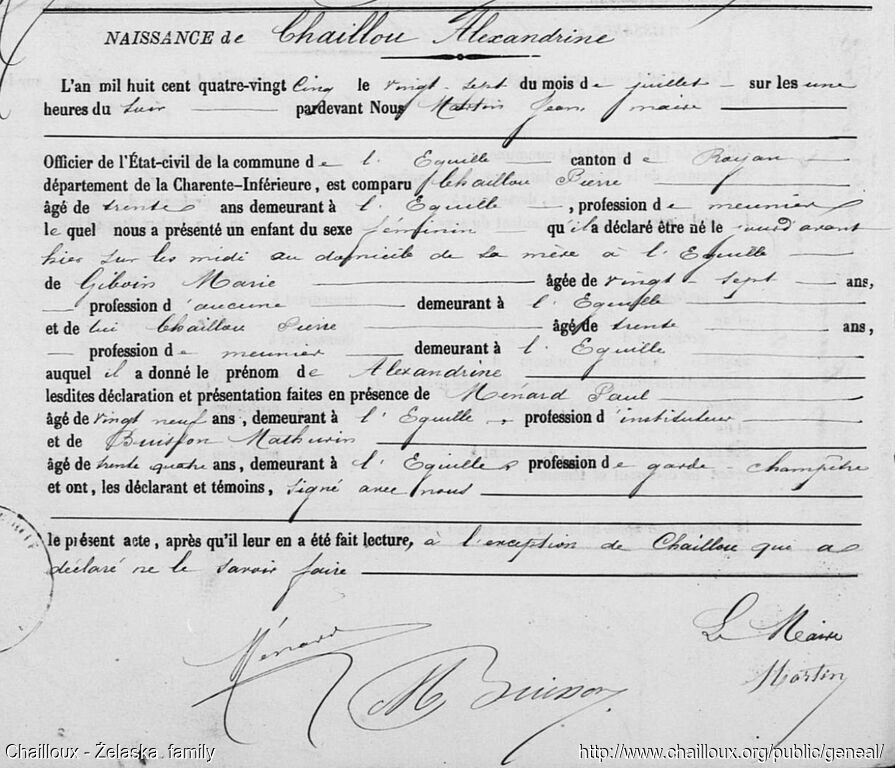 NAISSANCE de Chaillou Alexandrine
L'an mil huit cent quatre-vingt Cinq le vingt-sept du mois de juillet sur les une
heures du soir pardevant Nous Martin Jean maire
Officier de l'État-civil de la commune de l'Eguille canton de Royan
département de la Charente-Inférieure, est comparu Chaillou Pierre
âgé de trente ans demeurant à l'Eguille, profession de meunier
le quel nous a présenté un enfant du sexe féminin qu'il a déclaré être né le jourd'avant
hier sur les midi au domicile de la mère à l'Eguille
de Giboin Marie âgée de vingt-sept ans,
profession d'aucune demeurant à l'Eguille
et de lui Chaillou Pierre âgé de trente ans,
profession de meunier demeurant à l'Eguille
auquel il a donné le prénom de Alexandrine
lesdites déclaration et présentation faites en présence de Ménard Paul
âgé de vingt neuf ans, demeurant à l'Eguille, profession d'instituteur
et de Buisson Mathurin
âgé de trente quatre ans, demeurant à l'Eguille profession de garde-champêtre
et ont, les déclarant et témoins, signé avec nous
le présent acte, après qu'il leur en a été fait lecture, à l'exception de Chaillou que a
déclaré ne le savoir faire
Ménard
M Buisson
Le Maire
Martin
Chailloux - Żelaska family
http://www.chailloux.org/public/geneal/